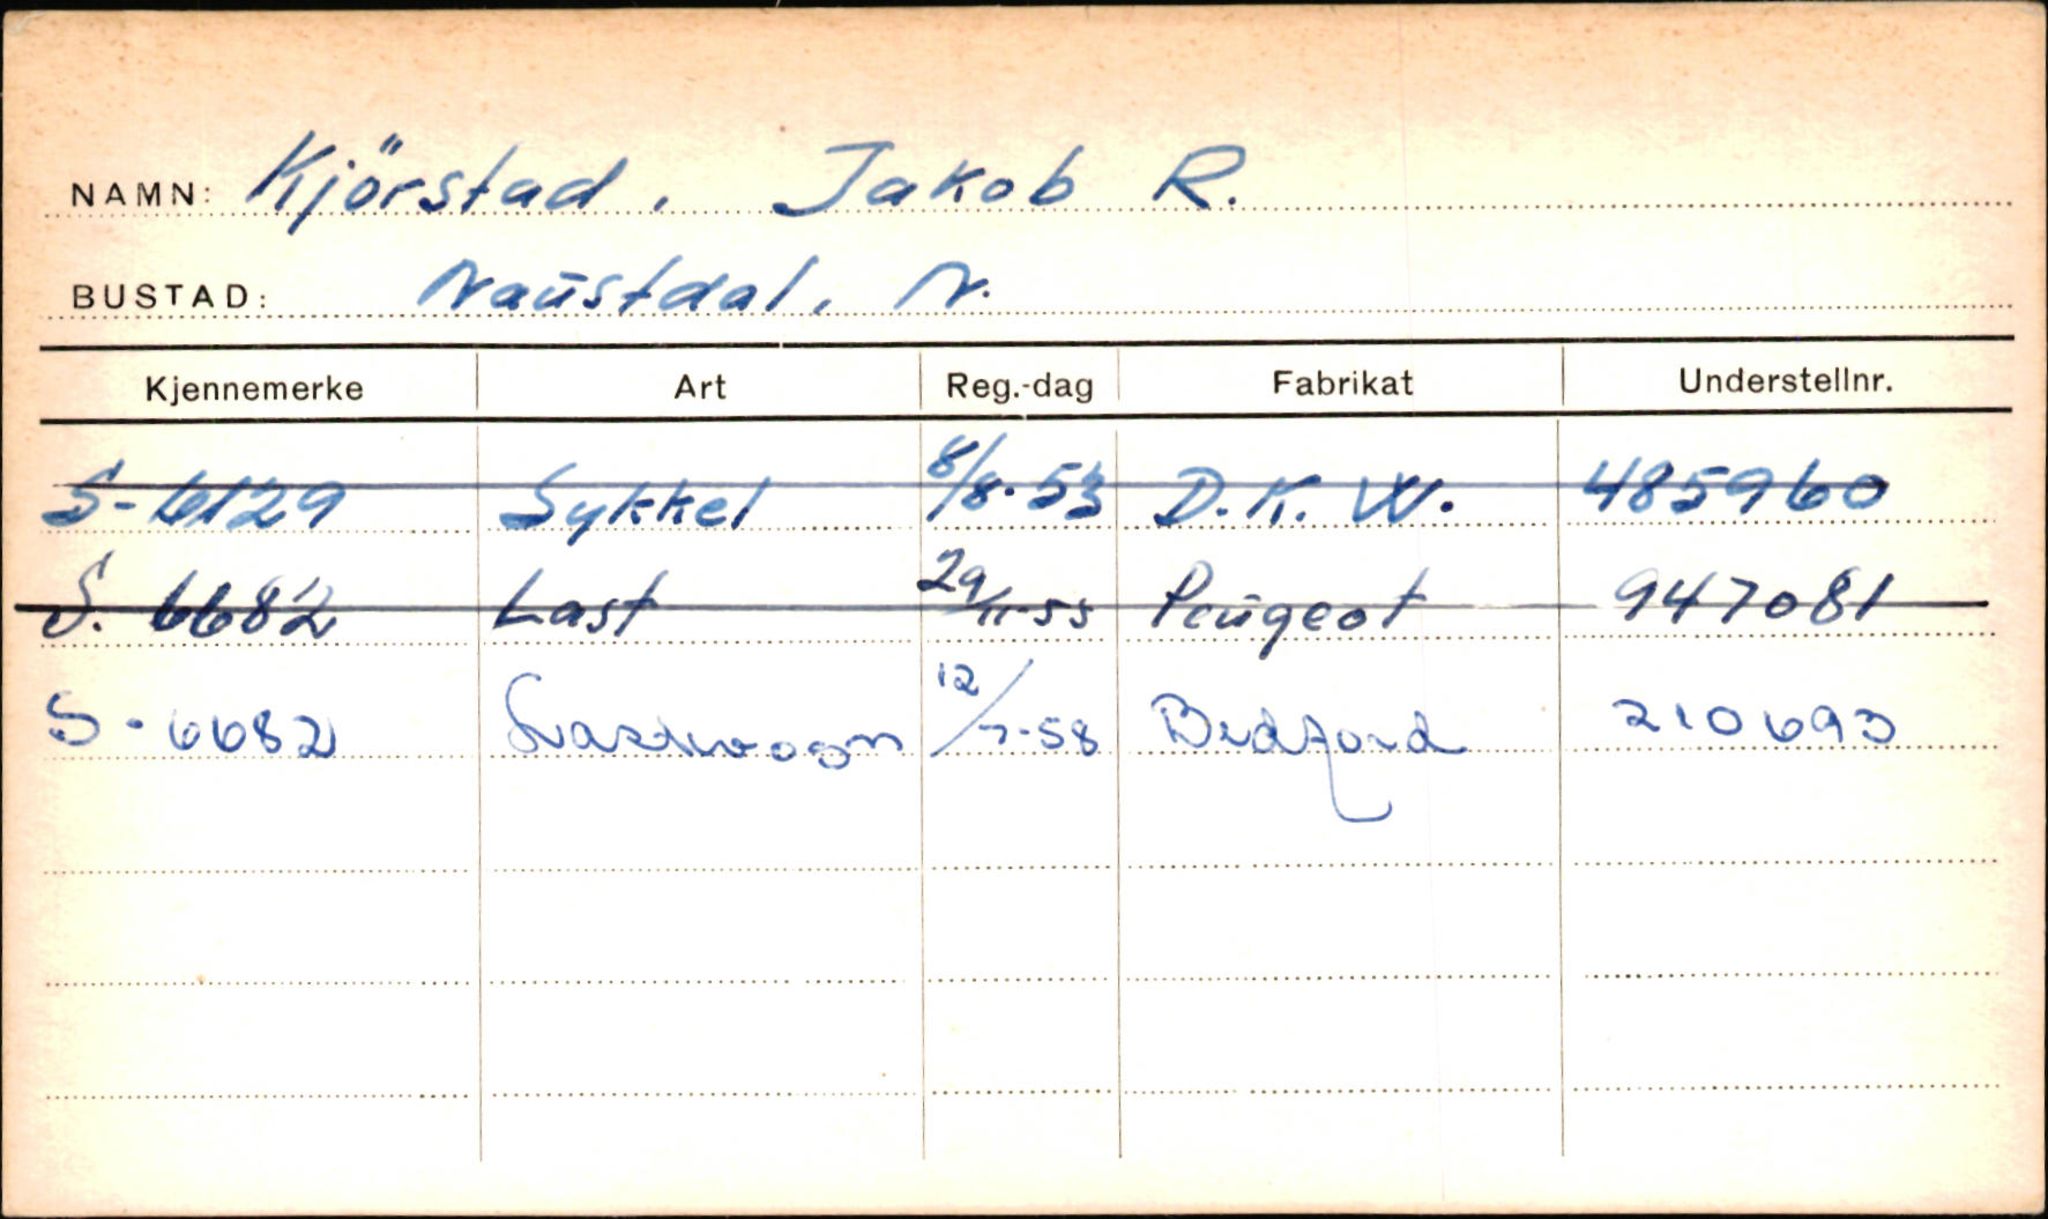 NAMN: Kjörstad, Jakob R.
BUSTAD: Naustdal, N.
Kjennemerke Art Reg.-dag Fabrikat Understellnr.
S-6129 Sykkel 8/8-53 D.K.W. 485960
S. 6682 Last 29/11-55 Peugeot 947081
S-6682 Lastevogn 12/7-58 Bedford 210693